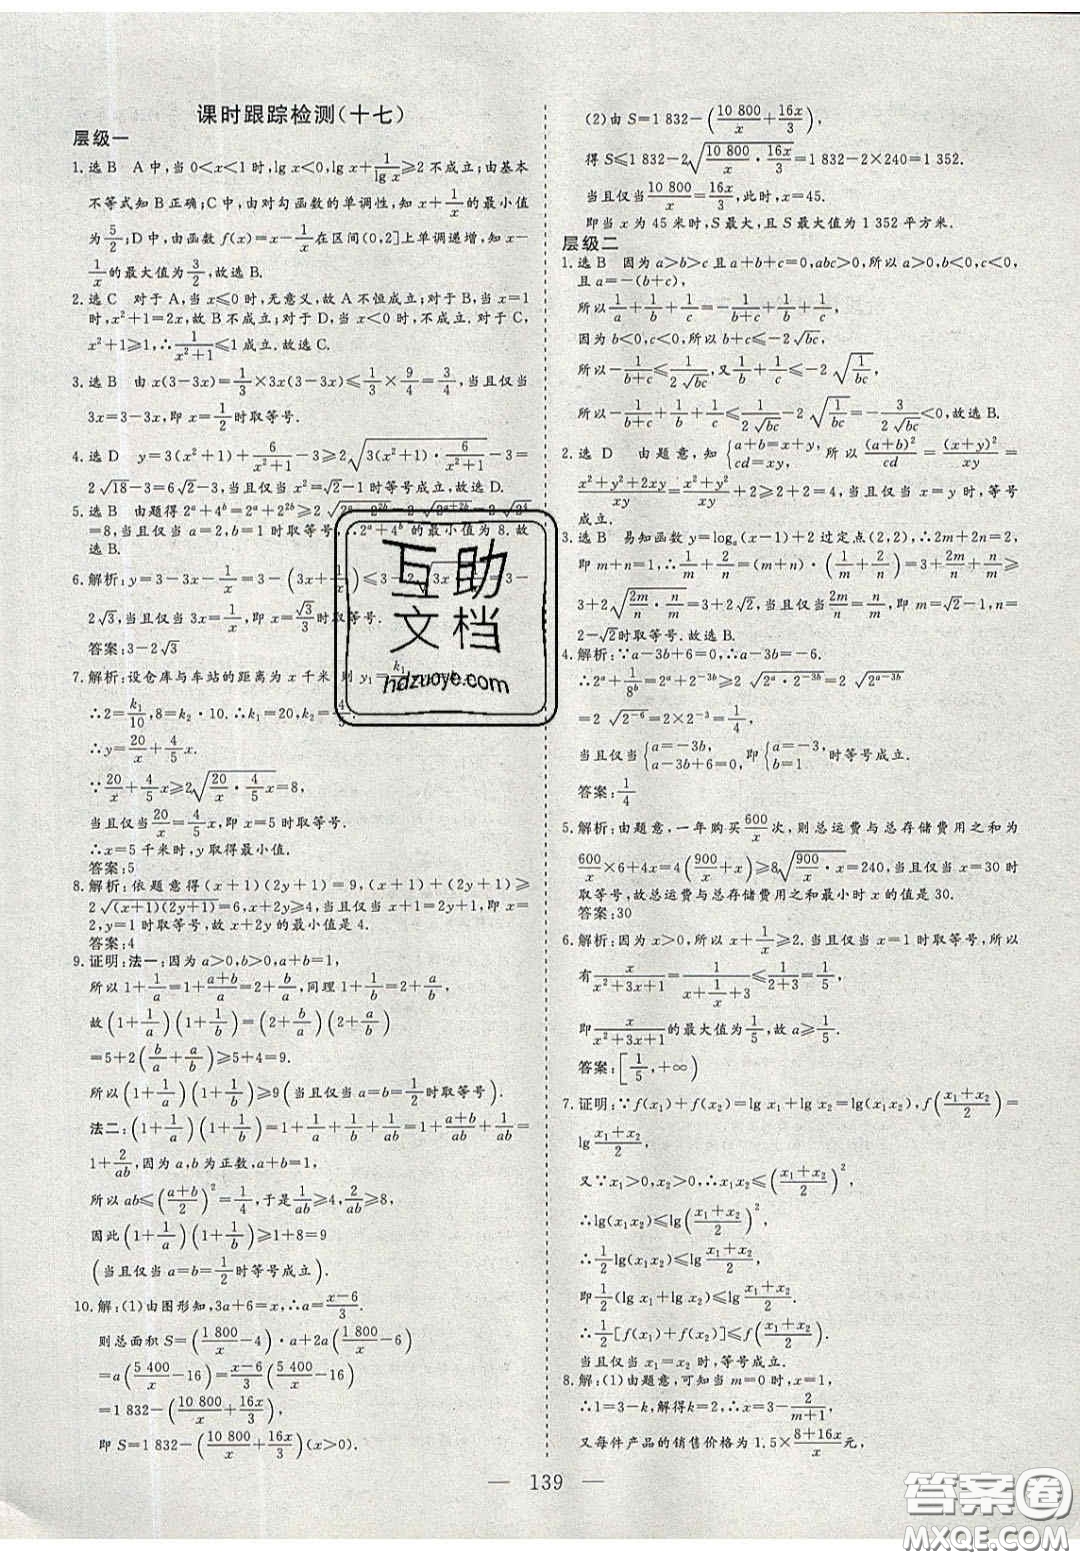 课时跟踪检测(十七)
层级一
1.选B A中,当0<x<1时,lg x<0,lg x+1/lg x≥2不成立;由基本
不等式知B正确;C中,由对勾函数的单调性,知x+1/x的最小值
为5/2;D中,由函数f(x)=x-1/x在区间(0,2]上单调递增,知x-
1/x的最大值为3/2,故选B.
2.选C 对于A,当x≤0时,无意义,故A不恒成立;对于B,当x=1
时,x²+1=2x,故B不成立;对于D,当x=0时,不成立.对于C,
x²+1≥1,∴1/(x²+1)≤1成立.故选C.
3.选B 由x(3-3x)=1/3×3x(3-3x)≤1/3×9/4=3/4,当且仅当
3x=3-3x,即x=1/2时取等号.
4.选D y=3(x²+1)+6/(x²+1)-3≥2√(3(x²+1)·6/(x²+1))-3=
2√18-3=6√2-3,当且仅当x²=√2-1时等号成立,故选D.
5.选B 由题得2^a+4^b=2^a+2^(2b)≥2√(2^a·2^(2b))=2√(2^(a+2b))=2√(2^4)
=8,当且仅当a=2,b=1时取等号,∴2^a+4^b的最小值为8.故
选B.
6.解析:y=3-3x-1/x=3-(3x+1/x)≤3-2√(3x·1/x)=3-
2√3,当且仅当3x=1/x,即x=√3/3时取等号.
答案:3-2√3
7.解析:设仓库与车站的距离为x千米,则y₁=k₁/x
∴2=k₁/10,8=k₂·10.∴k₁=20,k₂=4/5.
∴y=20/x+4/5 x.
∵20/x+4/5 x≥2√(20/x·4/5 x)=8,
当且仅当20/x=4/5 x,即x=5时取等号.
∴x=5千米时,y取得最小值.
答案:5
8.解析:依题意得(x+1)(2y+1)=9,(x+1)+(2y+1)≥
2√((x+1)(2y+1))=6,x+2y≥4,当且仅当x+1=2y+1,即x=
2,y=1时取等号,故x+2y的最小值是4.
答案:4
9.证明:法一:因为a>0,b>0,a+b=1,
所以1+1/a=1+(a+b)/a=2+b/a,同理1+1/b=2+a/b,
故(1+1/a)(1+1/b)=(2+b/a)(2+a/b)
=5+2(b/a+a/b)≥5+4=9.
所以(1+1/a)(1+1/b)≥9(当且仅当a=b=1/2时取等号).
法二:(1+1/a)(1+1/b)=1+1/a+1/b+1/ab=1+(a+b)/ab+1/ab=
1+2/ab,因为a,b为正数,a+b=1,
所以ab≤((a+b)/2)²=1/4,于是1/ab≥4,2/ab≥8,
因此(1+1/a)(1+1/b)≥1+8=9
(当且仅当a=b=1/2时等号成立).
10.解:(1)由图形知,3a+6=x,∴a=(x-6)/3.
则总面积S=(1 800/x-4)·a+2a(1 800/x-6)
=a(5 400/x-16)=(x-6)/3(5 400/x-16)
=1 832-(10 800/x+16x/3),
即S=1 832-(10 800/x+16x/3)(x>0).
(2)由S=1 832-(10 800/x+16x/3),
得S≤1 832-2√(10 800/x·16x/3)=1 832-2×240=1 352.
当且仅当10 800/x=16x/3,此时,x=45.
即当x为45米时,S最大,且S最大值为1 352平方米.
层级二
1.选B 因为a>b>c且a+b+c=0,abc>0,所以a>0,b<0,c<0,
且a=-(b+c),
所以1/a+1/b+1/c=-1/(b+c)+1/b+1/c,
因为b<0,c<0,所以b+c≤-2√bc,
所以-1/(b+c)≤1/(2√bc),又1/b+1/c≤-2√(1/bc),
所以-1/(b+c)+1/b+1/c≤1/(2√bc)-2√(1/bc)=-3/(2√bc)<0,故选B.
2.选D 由题意,知{a+b=x+y,cd=xy,所以(a+b)²/cd=(x+y)²/xy=
(x²+y²+2xy)/xy=(x²+y²)/xy+2≥2+2=4,当且仅当x=y时,等号
成立.
3.选B 易知函数y=logₐ(x-1)+2过定点(2,2),∴2m+2n=2,
即m+n=1,∴1/m+2/n=(m+n)·(1/m+2/n)=3+2m/n+n/m≥
3+2√(2m/n·n/m)=3+2√2,当且仅当2m/n=n/m,即m=√2-1,n=
2-√2时取等号.故选B.
4.解析:∵a-3b+6=0,∴a-3b=-6.
∴2^a+1/8^b=2^a+2^(-3b)≥2√(2^a·2^(-3b))=2√(2^(a-3b))
=2√(2^(-6))=2×2^(-3)=1/4,
当且仅当{a=-3b,a-3b+6=0,即{a=-3,b=1.时等号成立.
答案:1/4
5.解析:由题意,一年购买600/x次,则总运费与总存储费用之和为
600/x×6+4x=4(900/x+x)≥8√(900/x·x)=240,当且仅当x=30时
取等号,故总运费与总存储费用之和最小时x的值是30.
答案:30
6.解析:因为x>0,所以x+1/x≥2.当且仅当x=1时取等号,所以
有x/(x²+3x+1)=1/(x+1/x+3)≤1/(2+3)=1/5,
即x/(x²+3x+1)的最大值为1/5,故a≥1/5.
答案:[1/5,+∞)
7.证明:∵f(x₁)+f(x₂)=lg x₁+lg x₂=lg(x₁x₂),f((x₁+x₂)/2)=
lg (x₁+x₂)/2,
又∵x₁>0,x₂>0,∴x₁x₂≤((x₁+x₂)/2)²,
∴lg(x₁x₂)≤lg((x₁+x₂)/2)²,
∴1/2 lg(x₁x₂)≤lg (x₁+x₂)/2,
即1/2(lg x₁+lg x₂)≤lg (x₁+x₂)/2.
∴1/2[f(x₁)+f(x₂)]≤f((x₁+x₂)/2).
当且仅当x₁=x₂时,等号成立.
8.解:(1)由题意,可知当m=0时,x=1,
∴1=3-k,解得k=2,∴x=3-2/(m+1),
又每件产品的销售价格为1.5×(8+16x)/x元,
139
互助
文档
hdzuoye.com
答案圈
MXQE.COM